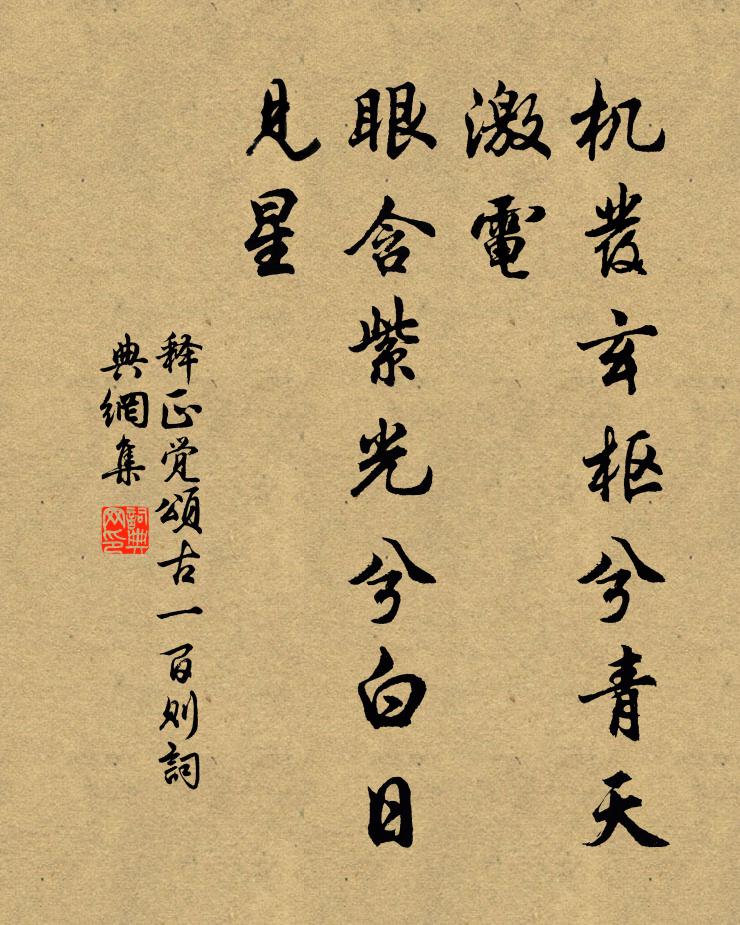 机發玄枢兮青天
激電
眼含紫光兮白日
見星
释正觉頌古一百则詞
典網集
詞典网印